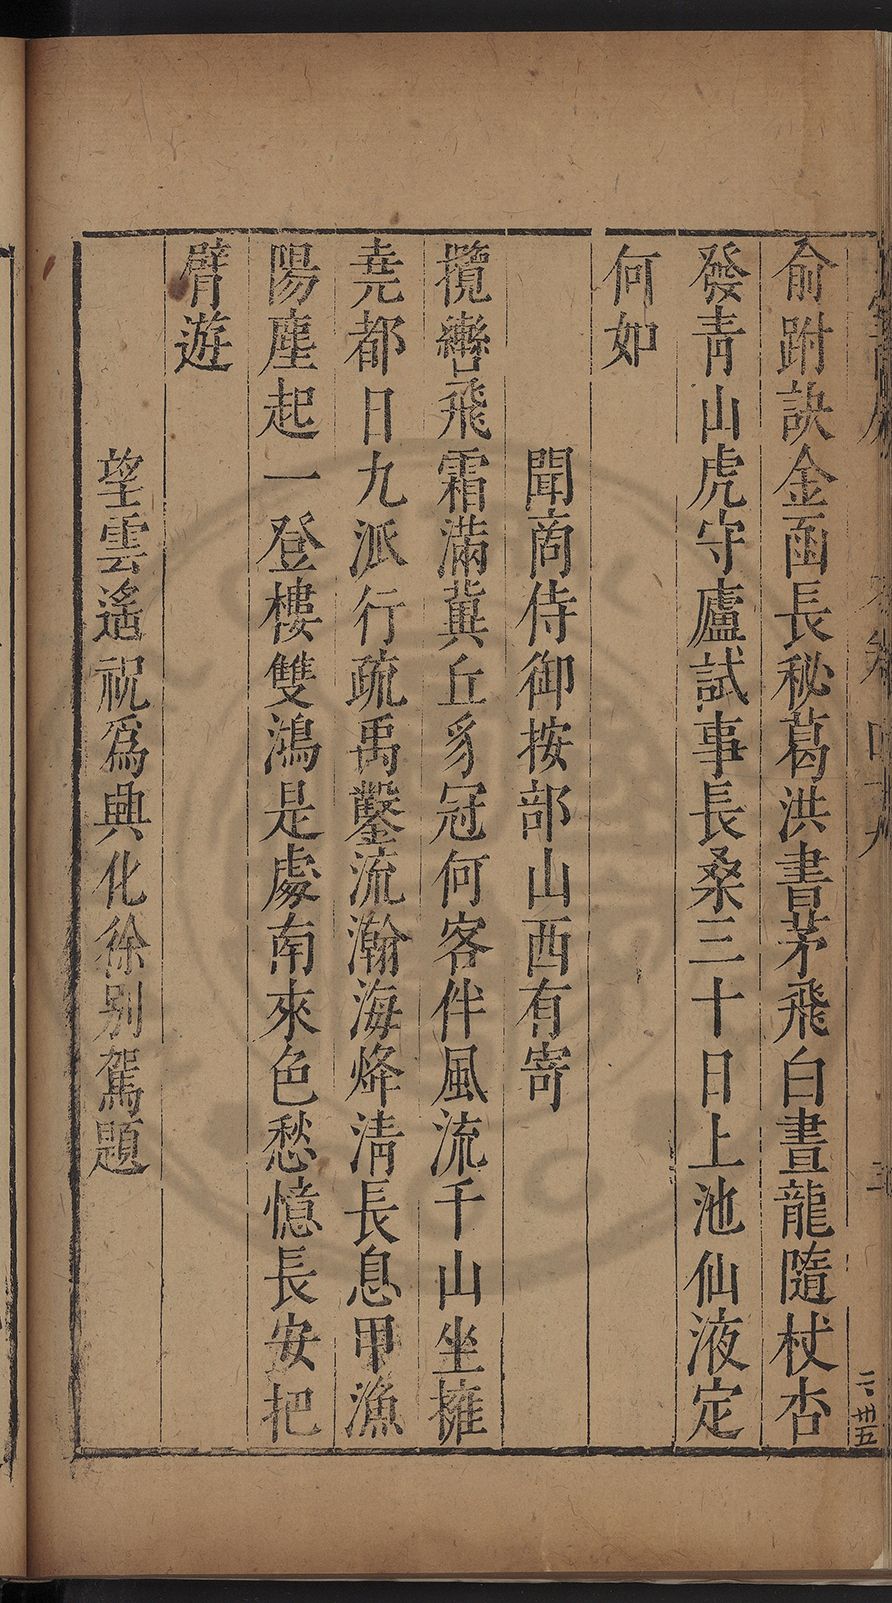 俞跗訣金函長秘葛洪書茅飛白晝龍隨杖杏
發青山虎守廬試事長桑三十日上池仙液定
何如
聞商侍御按部山西有寄
攬轡飛霜滿冀丘豸冠何客伴風流千山坐擁
堯都日九派行疏禹鑿流瀚海烽清長息甲漁
陽塵起一登樓雙鴻是處南來色愁憶長安把
臂遊
望雲遙祝爲興化徐別駕題
二·卅五